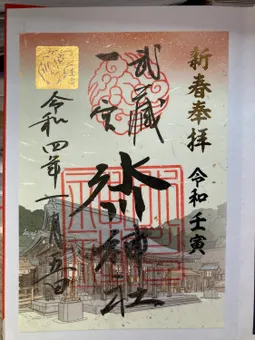 新春奉拝
令和壬寅
武藏
一宮
氷川神社
令和四年一月五日